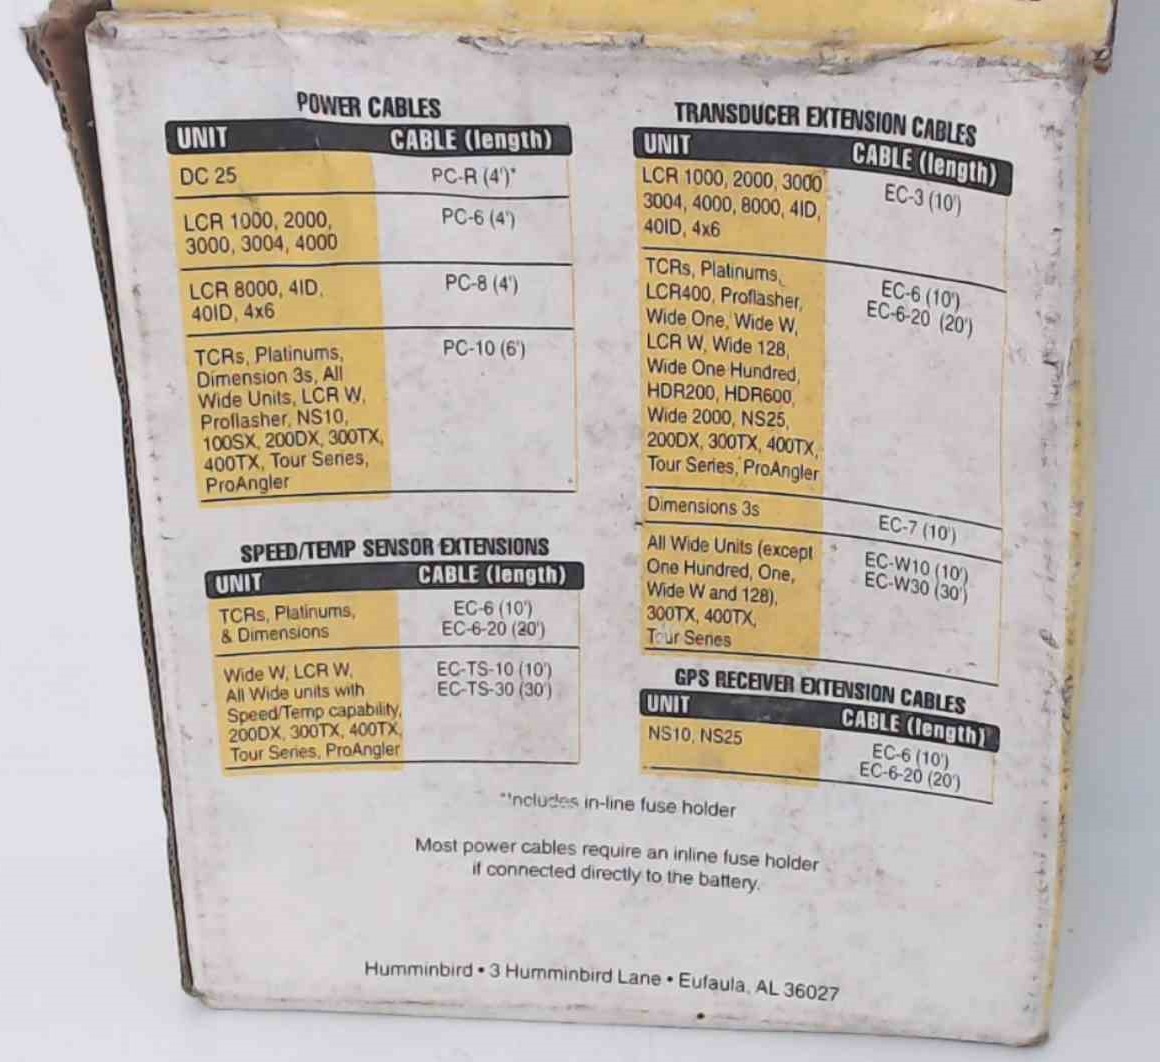 POWER CABLES
UNIT CABLE (length)
DC 25 PC-R (4')*
LCR 1000, 2000, PC-6 (4')
3000, 3004, 4000
LCR 8000, 4ID, PC-8 (4')
40ID, 4x6
TCRs, Platinums, PC-10 (6')
Dimension 3s, All
Wide Units, LCR W,
Proflasher, NS10,
100SX, 200DX, 300TX,
400TX, Tour Series,
ProAngler
SPEED/TEMP SENSOR EXTENSIONS
UNIT CABLE (length)
TCRs, Platinums, EC-6 (10')
& Dimensions EC-6-20 (20')
Wide W, LCR W, EC-TS-10 (10')
All Wide units with EC-TS-30 (30')
Speed/Temp capability,
200DX, 300TX, 400TX,
Tour Series, ProAngler
TRANSDUCER EXTENSION CABLES
UNIT CABLE (length)
LCR 1000, 2000, 3000 EC-3 (10')
3004, 4000, 8000, 4ID,
40ID, 4x6
TCRs, Platinums, EC-6 (10')
LCR400, Proflasher, EC-6-20 (20')
Wide One, Wide W,
LCR W, Wide 128,
Wide One Hundred,
HDR200, HDR600,
Wide 2000, NS25,
200DX, 300TX, 400TX,
Tour Series, ProAngler
Dimensions 3s EC-7 (10')
All Wide Units (except EC-W10 (10')
One Hundred, One, EC-W30 (30')
Wide W and 128),
300TX, 400TX,
Tour Series
GPS RECEIVER EXTENSION CABLES
UNIT CABLE (length)
NS10, NS25 EC-6 (10')
EC-6-20 (20')
*Includes in-line fuse holder
Most power cables require an inline fuse holder
if connected directly to the battery.
Humminbird • 3 Humminbird Lane • Eufaula, AL 36027